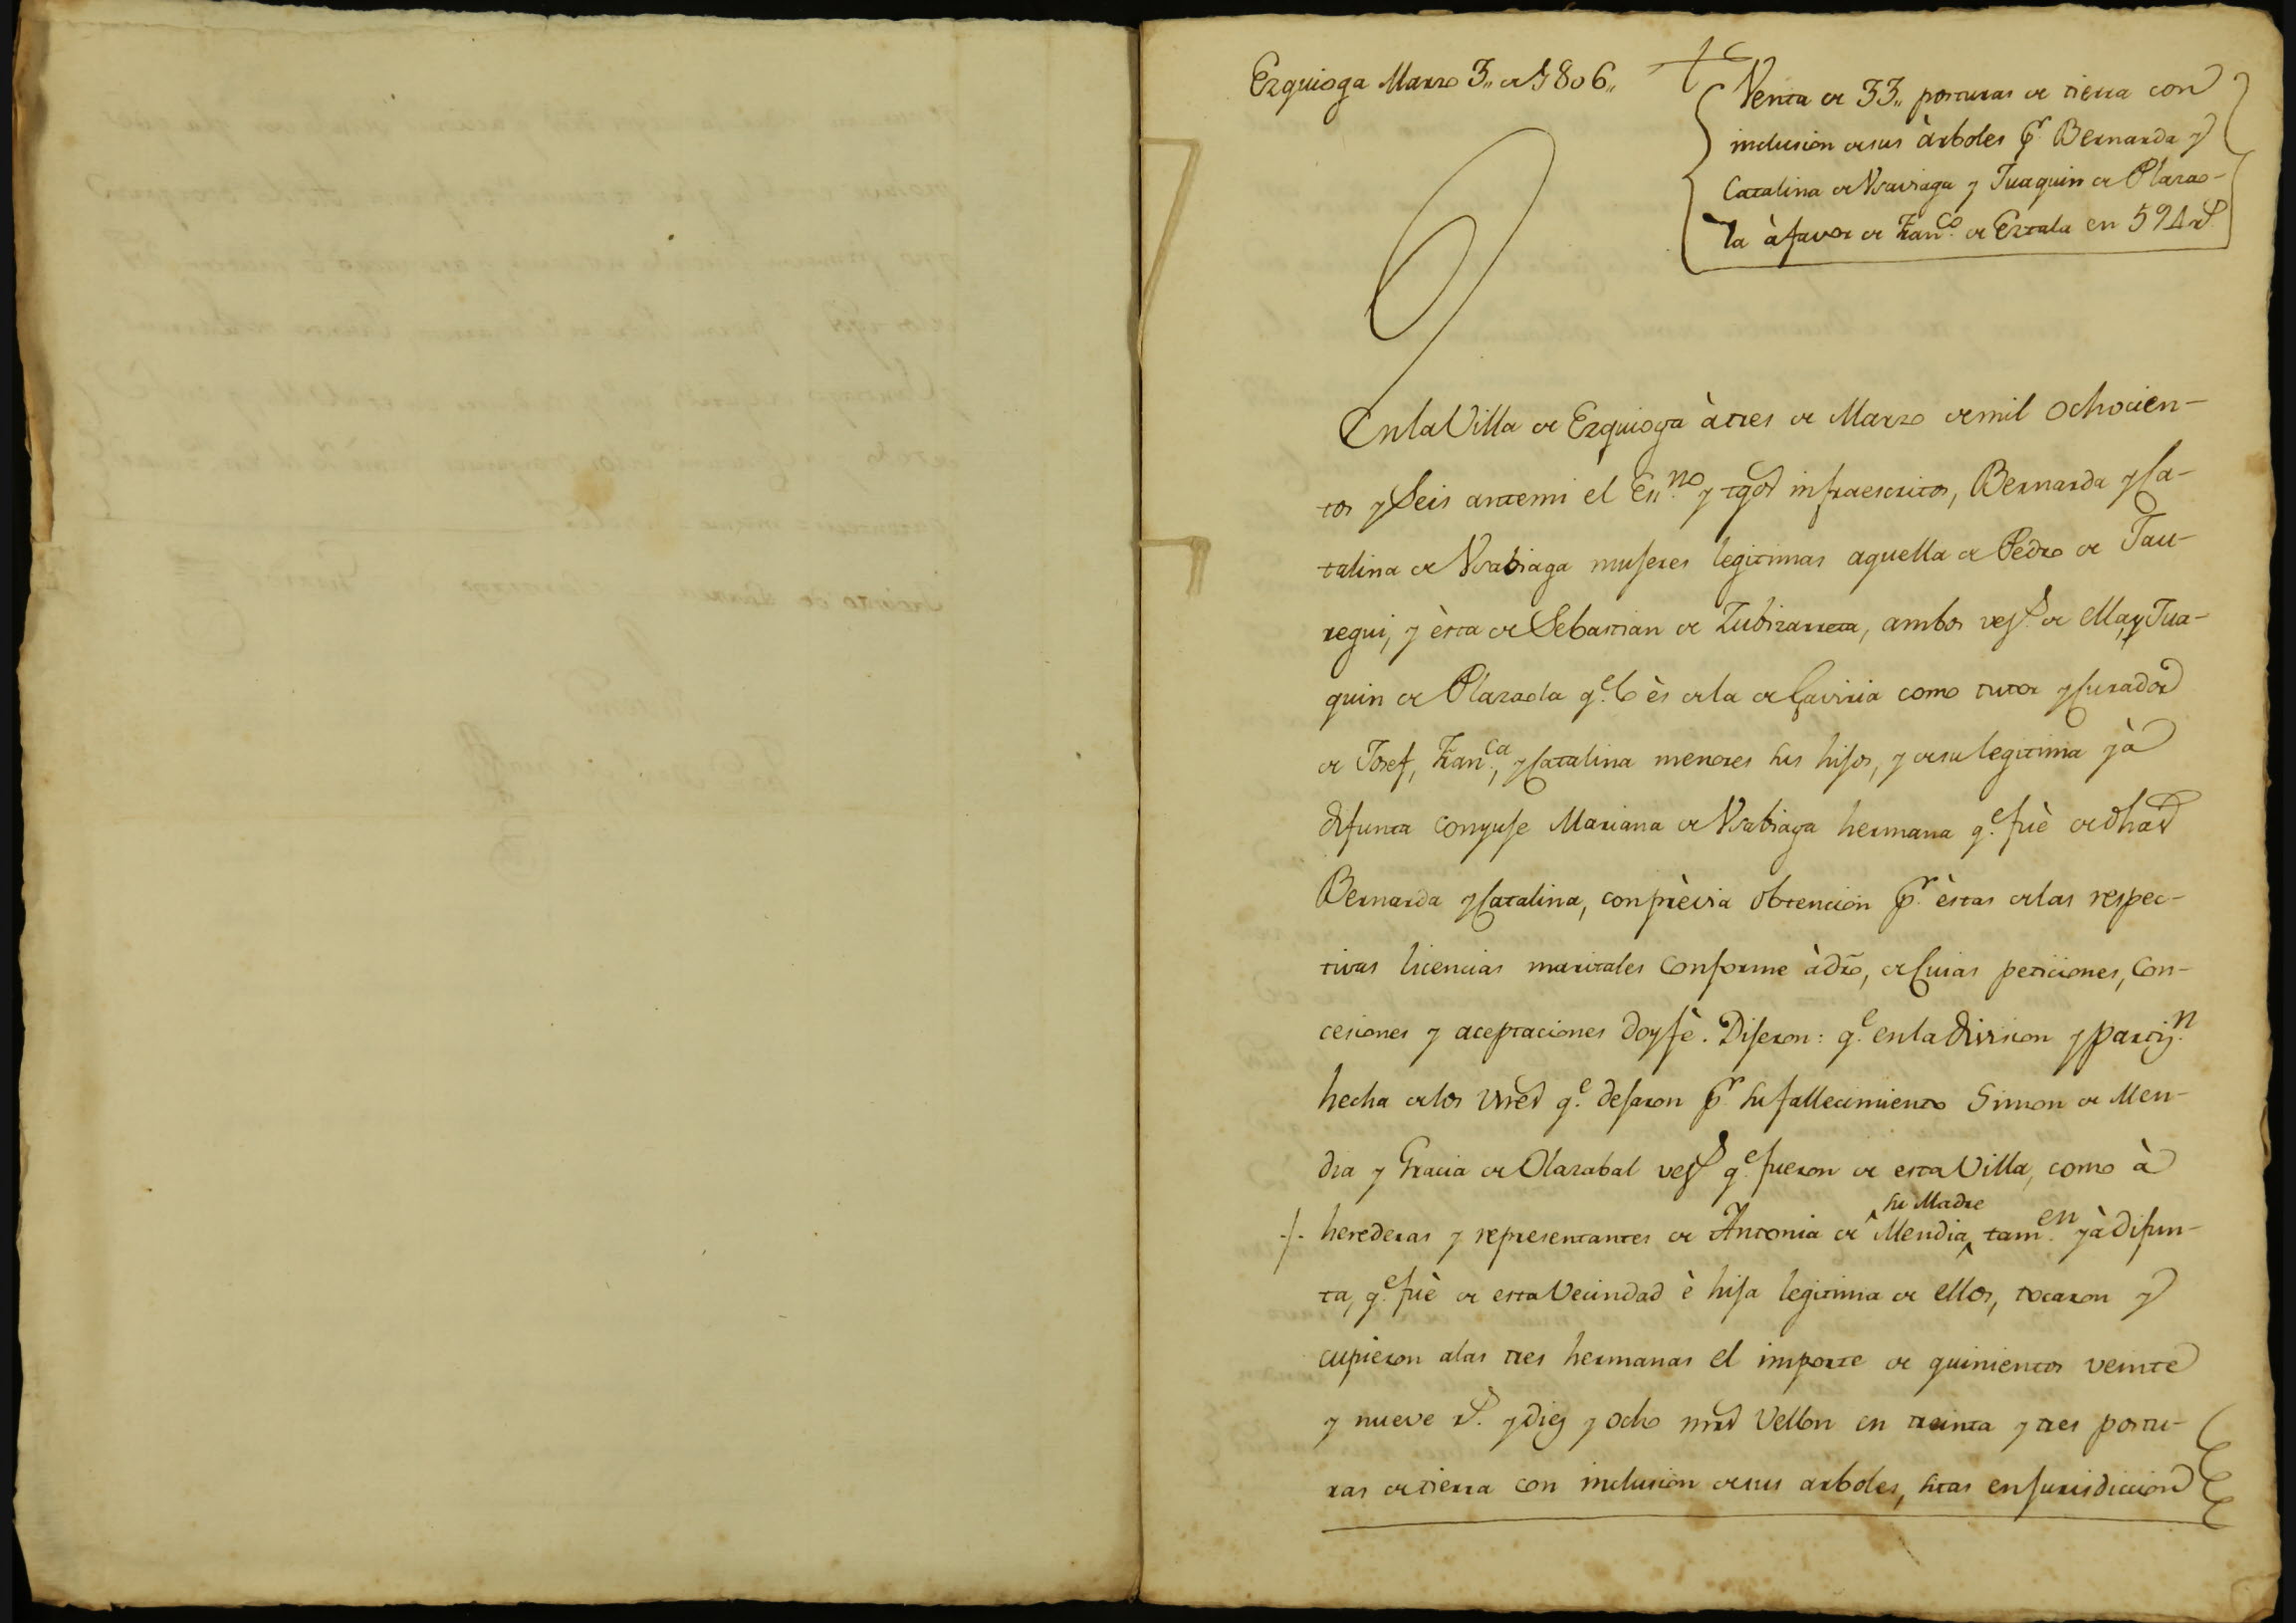 Ezquioga Marzo 3,, de 1806,,
Venta de 33,, posturas de tierra con
inclusion de sus àrboles pr. Bernarda y
Catalina de Vsaviaga y Juaquin de Olazao-
la à favor de Franco. de Eztala en 594 rs.
En la Villa de Ezquioga à tres de Marzo de mil ochocien-
tos y Seis ante mi el Esno. y tgos infraescritos, Bernarda y Ca-
talina de Vsabiaga mujeres legitimas aquella de Pedro de Jau-
regui, y èsta de Sebastian de Zubizarreta, ambos vezs. de ella, y Jua-
quin de Olazaola qe. lo ès de la de Gaviria como tutor y Curador
de Josef, Franca., y Catalina menores sus hijos, y de su legitima yà
difunta conyuje Mariana de Vsabiaga hermana qe. fuè de dhas
Bernarda y Catalina, con prèvia obtencion pr. èstas de las respec-
tivas licencias maritales conforme à dro, de Cuias peticiones, con-
cesiones y aceptaciones doy fè. Dijeron: qe. en la division y partizn.
hecha de los vnes qe. dejaron pr. su fallecimiento Simon de Men-
dia y Gracia de Olazabal vezs. qe. fueron de esta Villa, como à
su Madre
herederas y representantes de Antonia de Mendia, tamen. yà difun-
ta, qe. fuè de esta Vecindad è hija legitima de ellos, tocaron y
cupieron a las tres hermanas el importe de quinientos veinte
y nueve rs. y diez y ocho mrs vellon en treinta y tres postu-
ras de tierra con inclusion de sus arboles, sitas en jurisdiccion